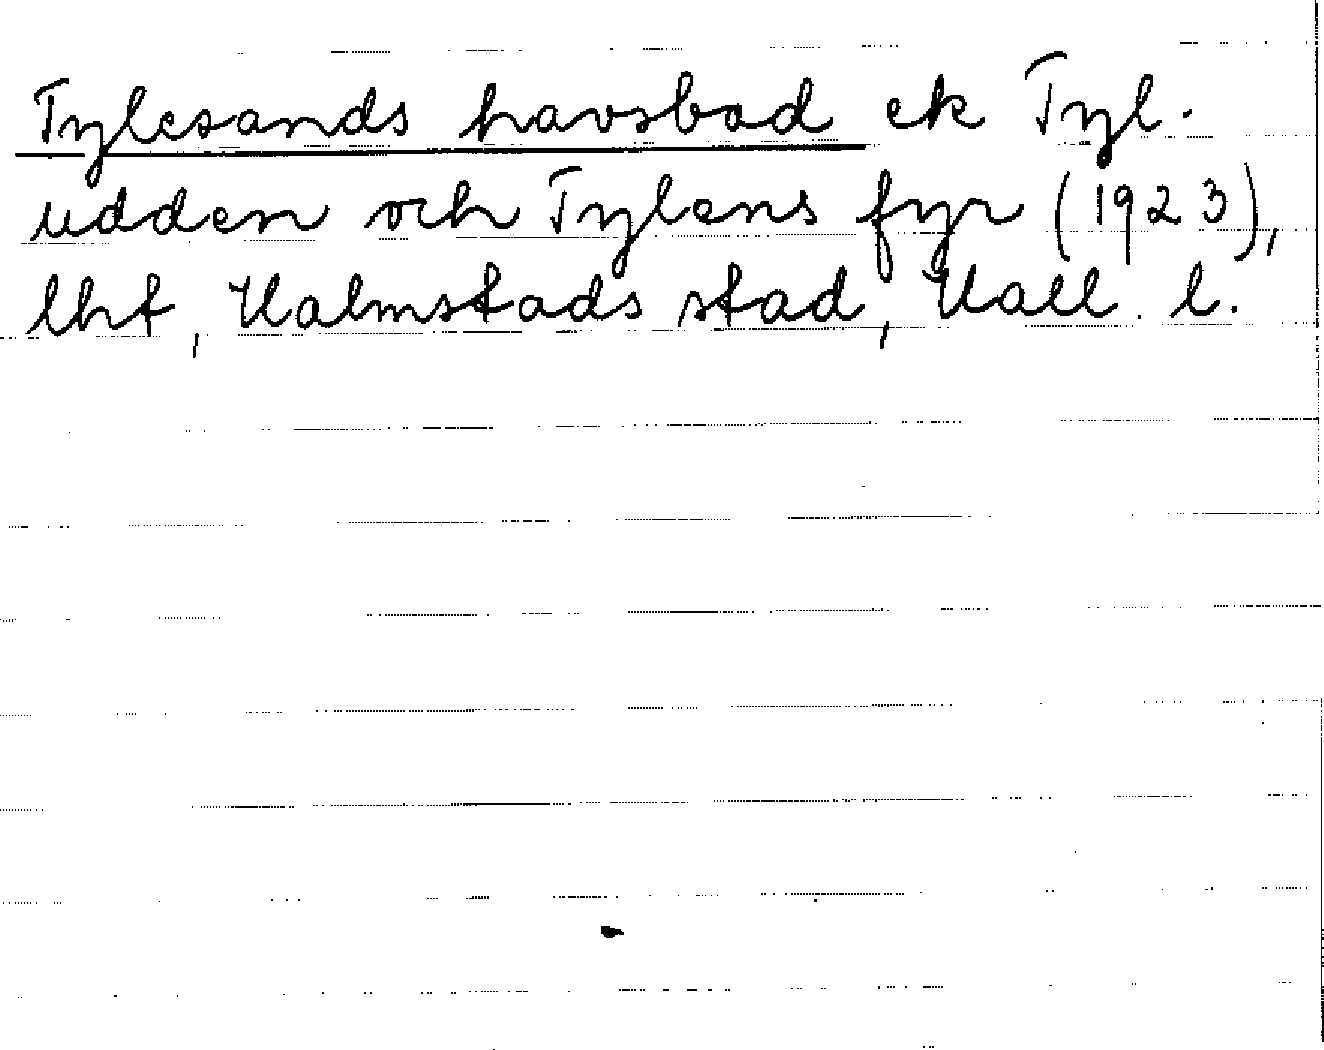 Tylesands havsbad ek Tyl-
udden och Tylens fyr (1923),
lht, Halmstads stad, Hall. l.